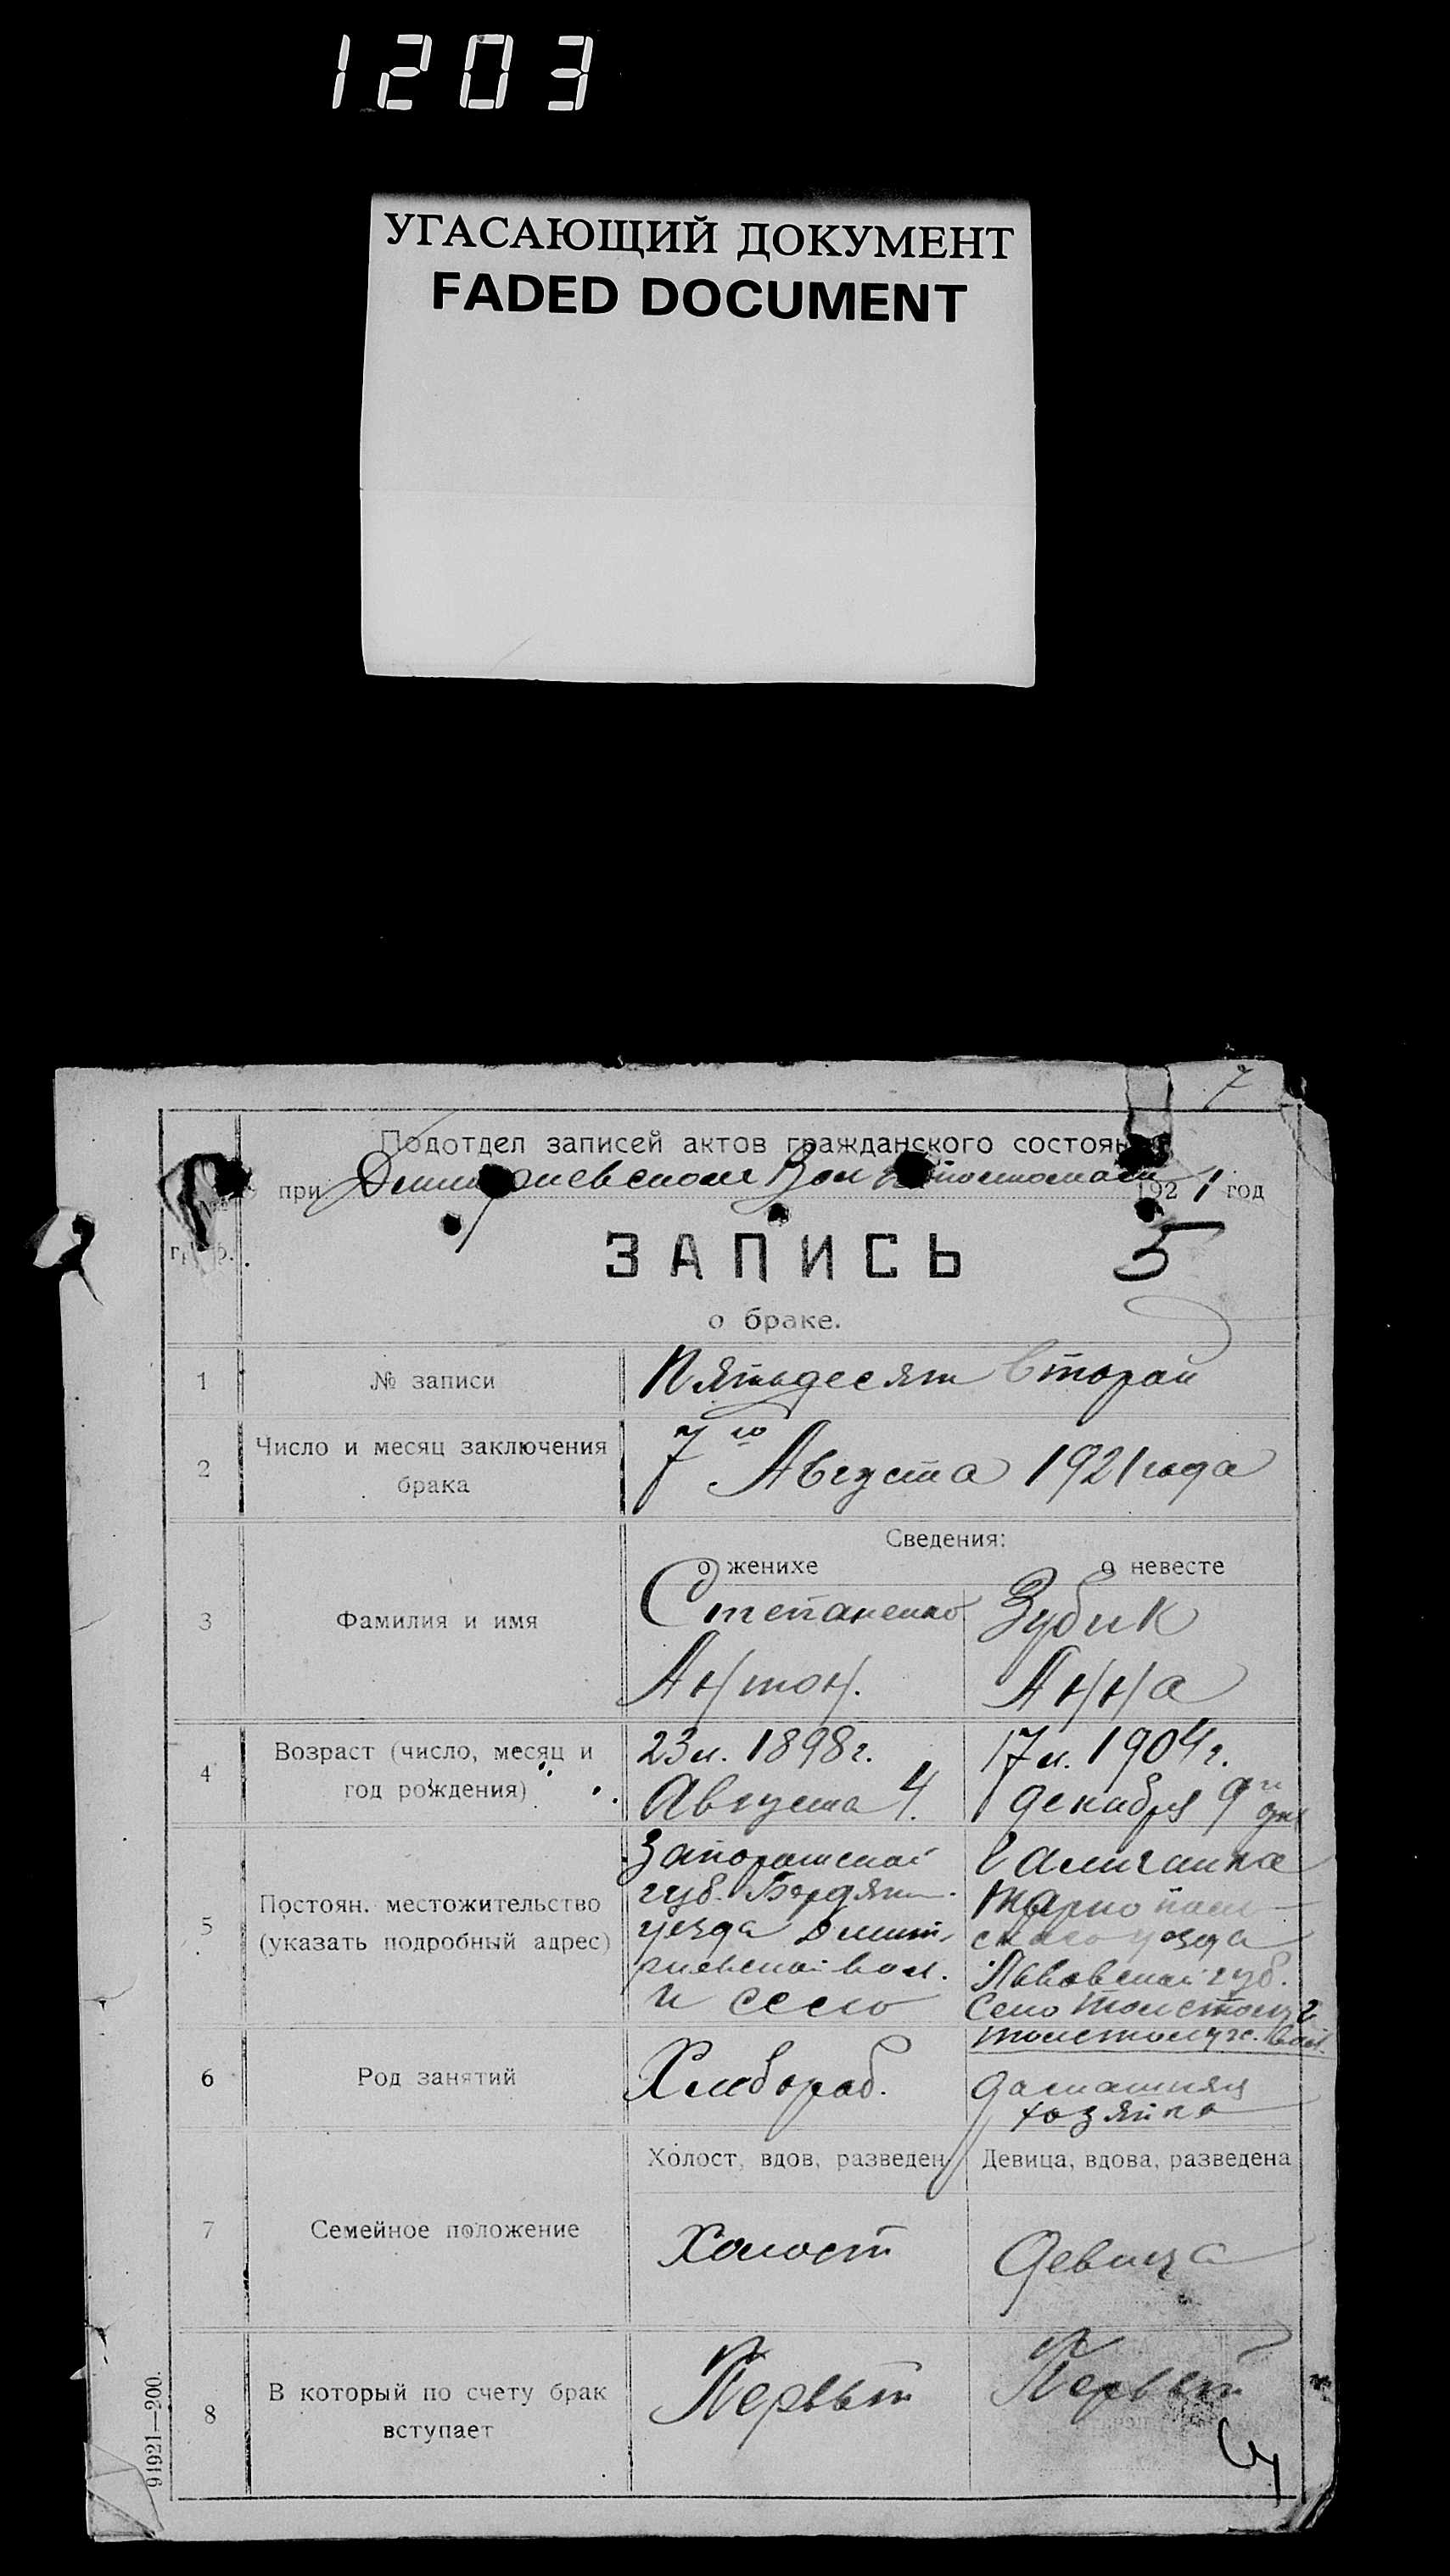 1203
УГАСАЮЩИЙ ДОКУМЕНТ
FADED DOCUMENT
7
Подотдел записей актов гражданского состоян
при 1921 год
ЗАПИСЬ 5
о браке.
1 № записи Пятьдесят второй
2 Число и месяц заключения
брака
7го Августа 1921 года
Сведения:
о женихе о невесте
3 Фамилия и имя
Степаненко Зубик
Антон. Анна
4 Возраст (число, месяц и
год рождения)
23 л. 1898 г. 17 л. 1904 г.
Августа 4. декабря 9го дня
5 Постоян. местожительство
(указать подробный адрес)
Запорошской
губ. Бердян.
уезда Дмит,
риевской вол.
и село
Галичанка
Тарнополь
ского уезда
Львовской губ.
Село Толстолуг
толстолуж. вол.
6 Род занятий
Хлебороб. домашняя
хозяйка
7 Семейное положение
Холост, вдов, разведен Девица, вдова, разведена
Холост Девица
8 В который по счету брак
вступает
Первый Первый
91921—200.